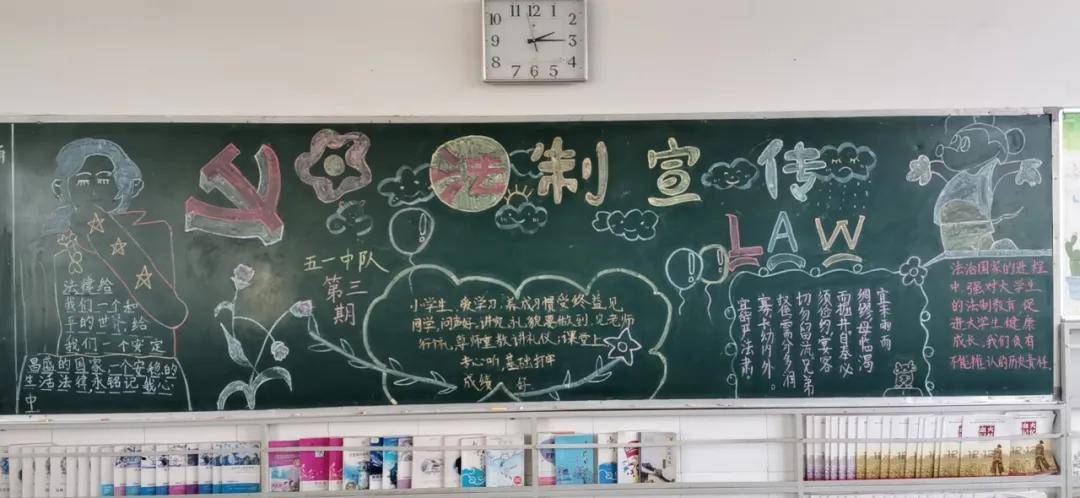 10 11 12 1 2
9 3
8 7 6 5 4
法制宣传
LAW
五一中队
第三期
法律给
我们一个和
平的世界,给
我们一个安定
昌盛的国家,一个安稳的
生活法律,永铭记我心
中
小学生,爱学习,养成习惯受终益,见
同学,问声好,讲究礼貌要做到,见老师
行礼,尊师重教讲礼仪:课堂上
专心听,基础打牢
成绩好
宜未雨而
绸缪毋临渴
而掘井自奉必
须俭约宴客
切勿留流
兄弟
叔侄需分多润
寡长幼内外
宜辞严法肃
法治国家的进程
中,强对大学生
的法制教育,促
进大学生健康
成长,我们负有
不能推认的历史责任